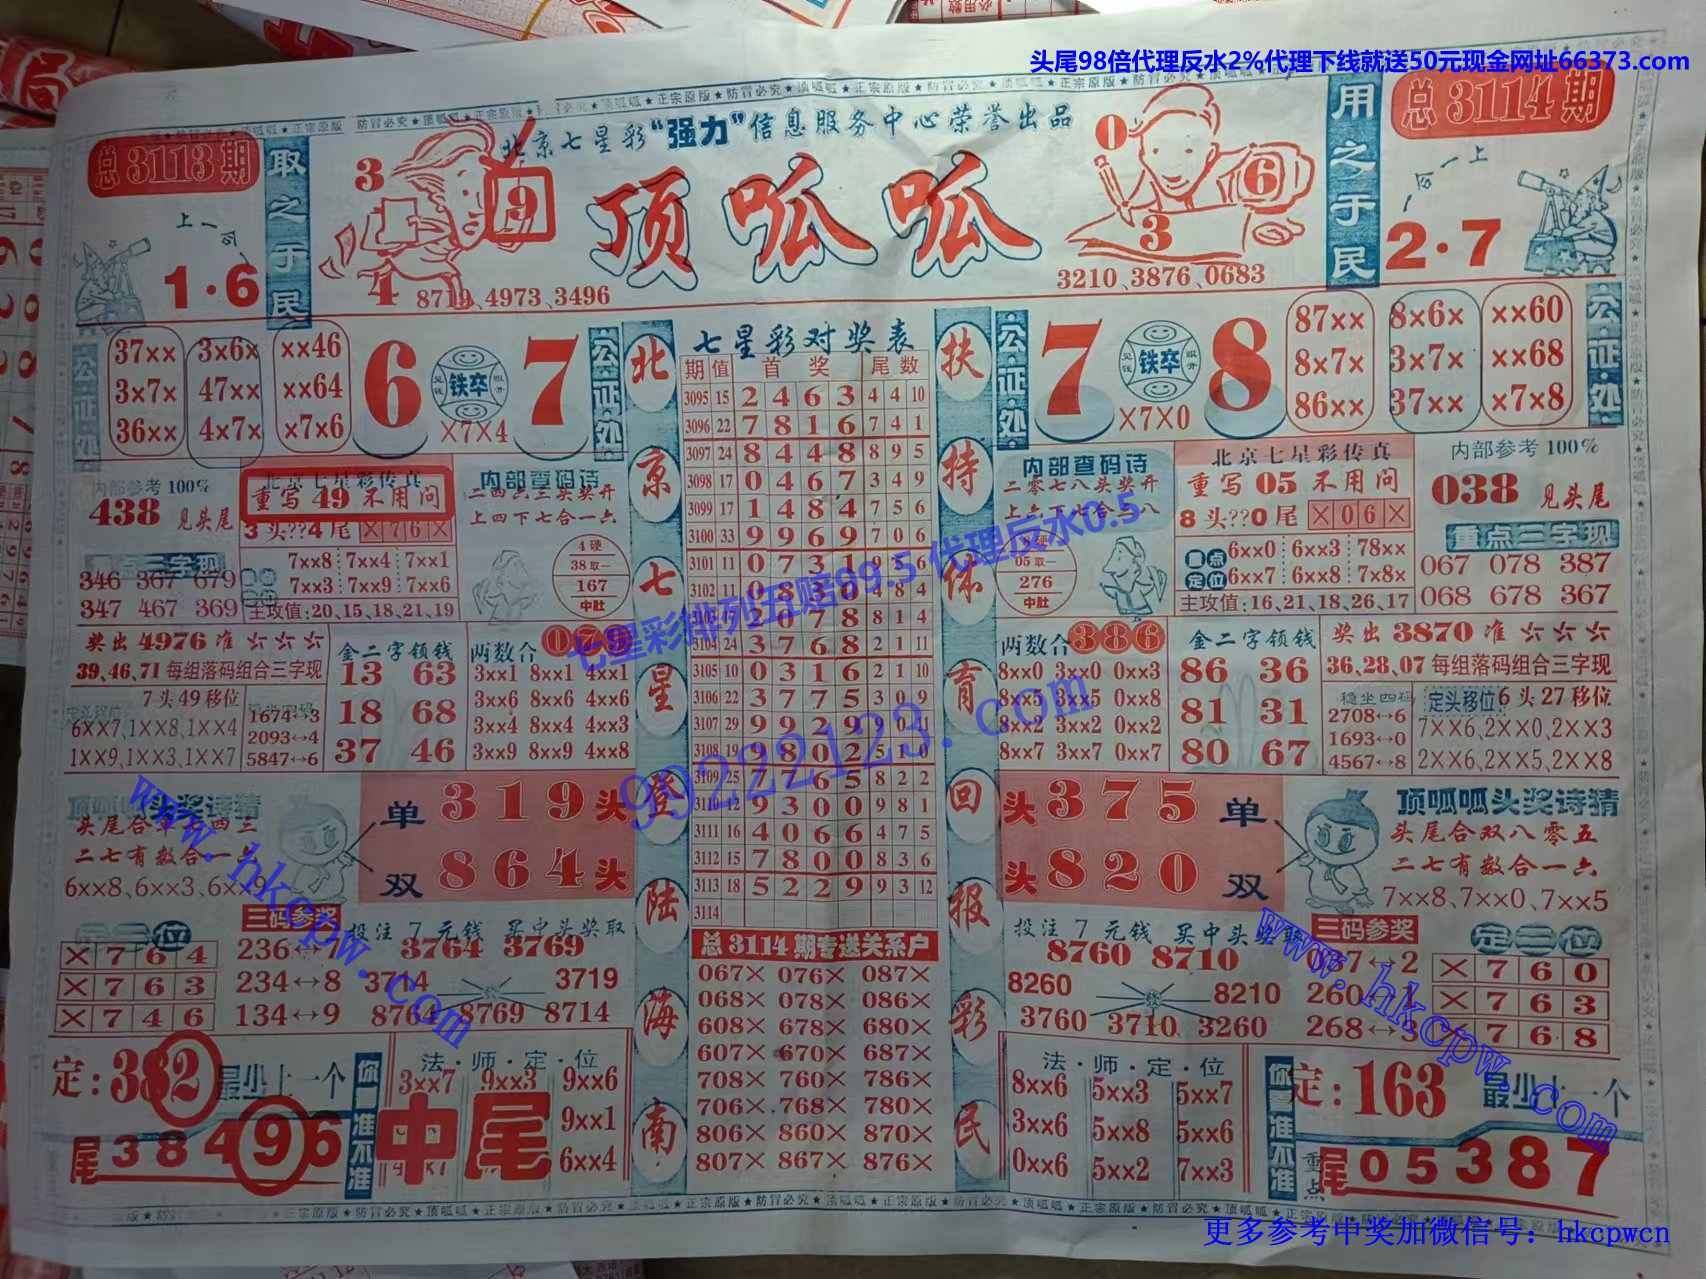 头尾98倍代理反水2%代理下线就送50元现金网址66373.com
北京七星彩“强力”信息服务中心荣誉出品
顶呱呱
总3113期
取之于民
1·6
3
9
4
8719、4973、3496
总3114期
用之于民
2·7
0
6
3
3210、3876、0683
公证处
37×× 3×6× ××46
3×7× 47×× ××64
36×× 4×7× ×7×6
6 铁卒 7
×7×4
公证处
7 铁卒 8
×7×0
87×× 8×6× ××60
8×7× 3×7× ××68
86×× 37×× ×7×8
内部参考100%
438 见头尾
北京七星彩传真
重写49不用问
3头??4尾 ×76×
内部查码诗
二四六三头奖开
上四下七合一六
346 367 679
347 467 369
7××8 7××4 7××1
7××3 7××9 7××6
主攻值:20、15、18、21、19
4硬
38取一
167
中肚
奖出4976准
39、46、71每组落码组合三字现
7头49移位
6××7、1××8、1××4
1××9、1××3、1××7
1674↔3
2093↔4
5847↔6
金二字领钱
13 63
18 68
37 46
两数合
3××1 8××1 4××1
3××6 8××6 4××6
3××4 8××4 4××3
3××9 8××9 4××8
二七有数合一
6××8、6××3、6××9
单 319头
双 864头
三码参奖
236↔7
234↔8
134↔9
×764
×763
×746
投注7元钱 买中头奖取
3764 3769
3714 3719
8764 8769 8714
定:382 最少上一个
尾38496
你看准不准
法·师·定·位
3××7 9××3 9××6
9××1
6××4
中尾
北京七星登陆海南
七星彩对奖表
期 值 首奖 尾数
3095 15 2463 4 4 10
3096 22 7816 7 4 1
3097 24 8448 8 9 5
3098 17 0467 3 4 9
3099 17 1484 7 5 6
3100 33 9969 7 0 6
3101 11 0731
3102 11 0830 4 8 4
3103 2078 8 1 4
3104 24 3768 2 1 11
3105 10 0316 2 1 10
3106 22 3775 3 0 9
3107 29 9929
3108 19 9802 5 1 0
3109 25 7765 8 2 2
3110 12 9300 9 8 1
3111 16 4066 4 7 5
3112 15 7800 8 3 6
3113 18 5229 9 3 12
3114
总3114期专送关系户
067× 076× 087×
068× 078× 086×
608× 678× 680×
607× 670× 687×
708× 760× 786×
706× 768× 780×
806× 860× 870×
807× 867× 876×
扶持体育回报彩民
内部查码诗
二零七八头奖开
北京七星彩传真
重写05不用问
8头??0尾 ×06×
内部参考100%
038 见头尾
重点三字现
067 078 387
068 678 367
05取一
276
中肚
重点定位
6××0 6××3 78××
6××7 6××8 7×8×
主攻值:16、21、18、26、17
两数合386
8××0 3××0 0××3
8××5 3××5 0××8
8××2 3××2 0××2
8××7 3××7 0××7
金二字领钱
86 36
81 31
80 67
奖出3870准
36、28、07每组落码组合三字现
稳坐四码
2708↔6
1693↔0
4567↔8
定头移位6头27移位
7××6、2××0、2××3
2××6、2××5、2××8
头375单
头820双
顶呱呱头奖诗猜
头尾合双八零五
二七有数合一六
7××8、7××0、7××5
投注7元钱
8760 8710
8260 8210
3760 3710 3260
三码参奖
087↔2
260↔1
268↔3
定三位
×760
×763
768
法·师·定·位
8××6 5××3 5××7
3××6 5××8 5××6
0××6 5××2 7××3
你看准不准
定:163
重点
尾05387
七星彩排列五赔99.5 代理反水0.5
99222123.com
www.hkcpw.com
www.hkcpw.com
更多参考中奖加微信号：hkcpwcn